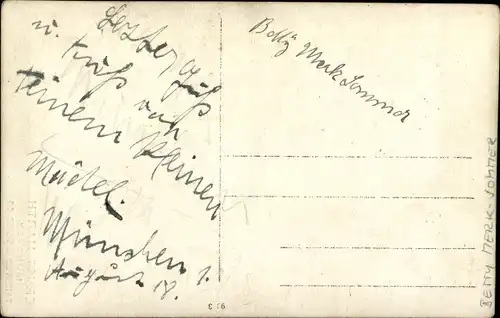 Letzter Gruß
u. Kuß von
Deinem kleinen
Mädel.
München 1.
August 18.
Betty Merk Sommer
BETTY MERK-SOMMER